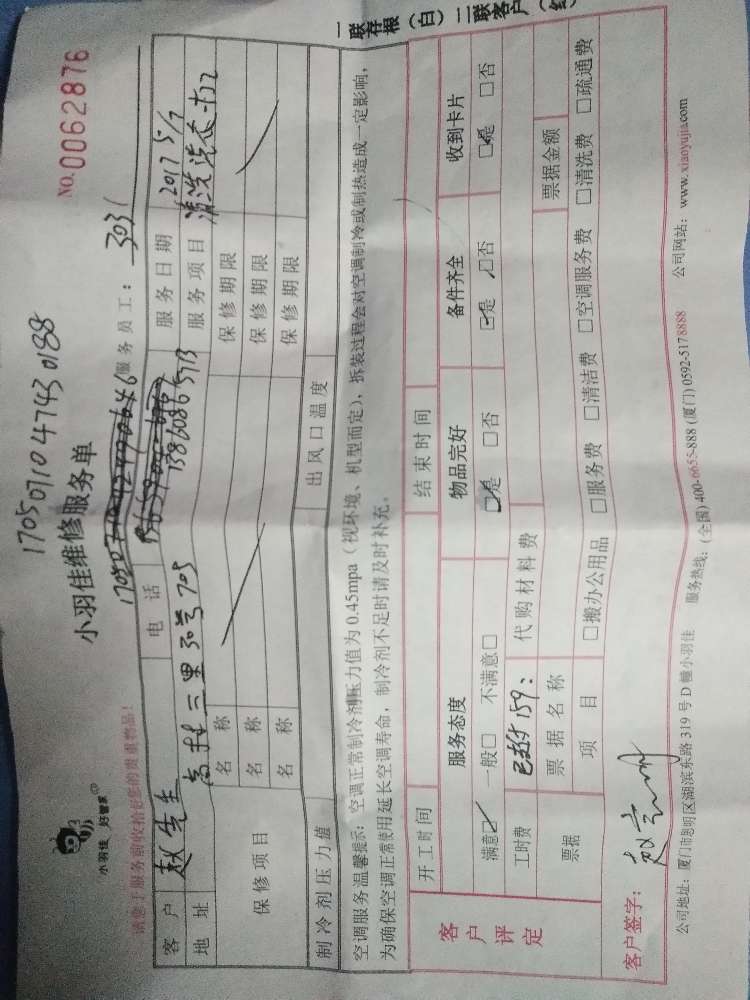 1705071047430188
小羽佳维修服务单
No.0062876
小羽佳 好管家
请您于服务前收拾好您的贵重物品!
服务员工: 3031
客户 赵先生 电话 服务日期 2017 5/7
15860865713
地址 三里30号705 服务项目 清洗洗衣机
保修项目 名称 保修期限
名称 保修期限
名称 保修期限
制冷剂压力值 出风口温度
空调服务温馨提示: 空调正常制冷剂压力值为0.45mpa(视环境、机型而定),拆装过程会对空调制冷或制热造成一定影响,
为确保空调正常使用延长空调寿命,制冷剂不足时请及时补充。
一联存根(白) 二联客户(红)
开工时间 结束时间
客户评定 服务态度 物品完好 备件齐全 收到卡片
满意☑ 一般□ 不满意□ ☑是 □否 ☑是 □否 ☑是 □否
工时费 已付159: 代购材料费
票据 票据名称 票据金额
项目 □搬办公用品 □服务费 □清洁费 □空调服务费 □清洗费 □疏通费
客户签字:
公司地址: 厦门市思明区湖滨东路319号D幢小羽佳 服务热线: (全国)400-6655-888 (厦门)0592-5178888 公司网站: www.xiaoyujia.com